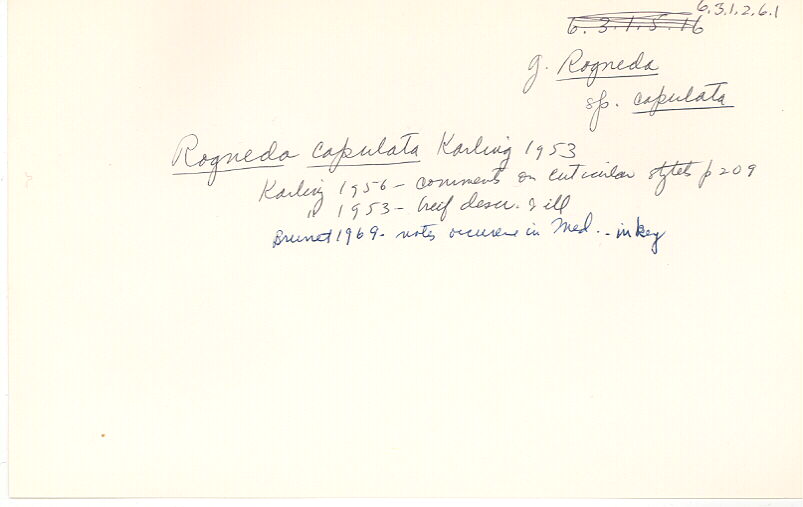 6.3.1.2.6.1
6.3.1.5.16
g. Rogneda
sp. capulata
Rogneda capulata Karling 1953
Karling 1956 - comments on cuticular stylets p 209
" 1953 - breif descr. & ill
Brunet 1969 - notes occurene in Med. - in key